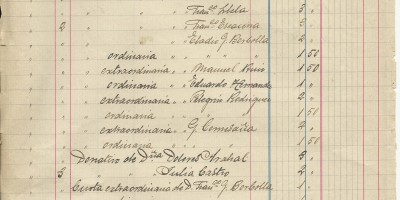 " " " " Franco. Lela 3 "
2 " " " Franco. Encisma 2 "
" " " " Eladio G. Borbolla 2 "
" ordinaria " " " 1 50
" extraordinaria " " Manuel Ruiz 1 50
" ordinaria " " Eduardo Hernandez 1 "
" extraordinaria " " Pelegrin Rodriguez 2 "
" ordinaria " " " 1 50
" extraordinaria " " G. 4 "
" ordinaria " " " 1 50
Donativo de Dña Dolores Arabal 5 "
3 " " " Julia Castro 2 "
Cuota extraordinaria de D. Franco. G. Borbolla 1 "